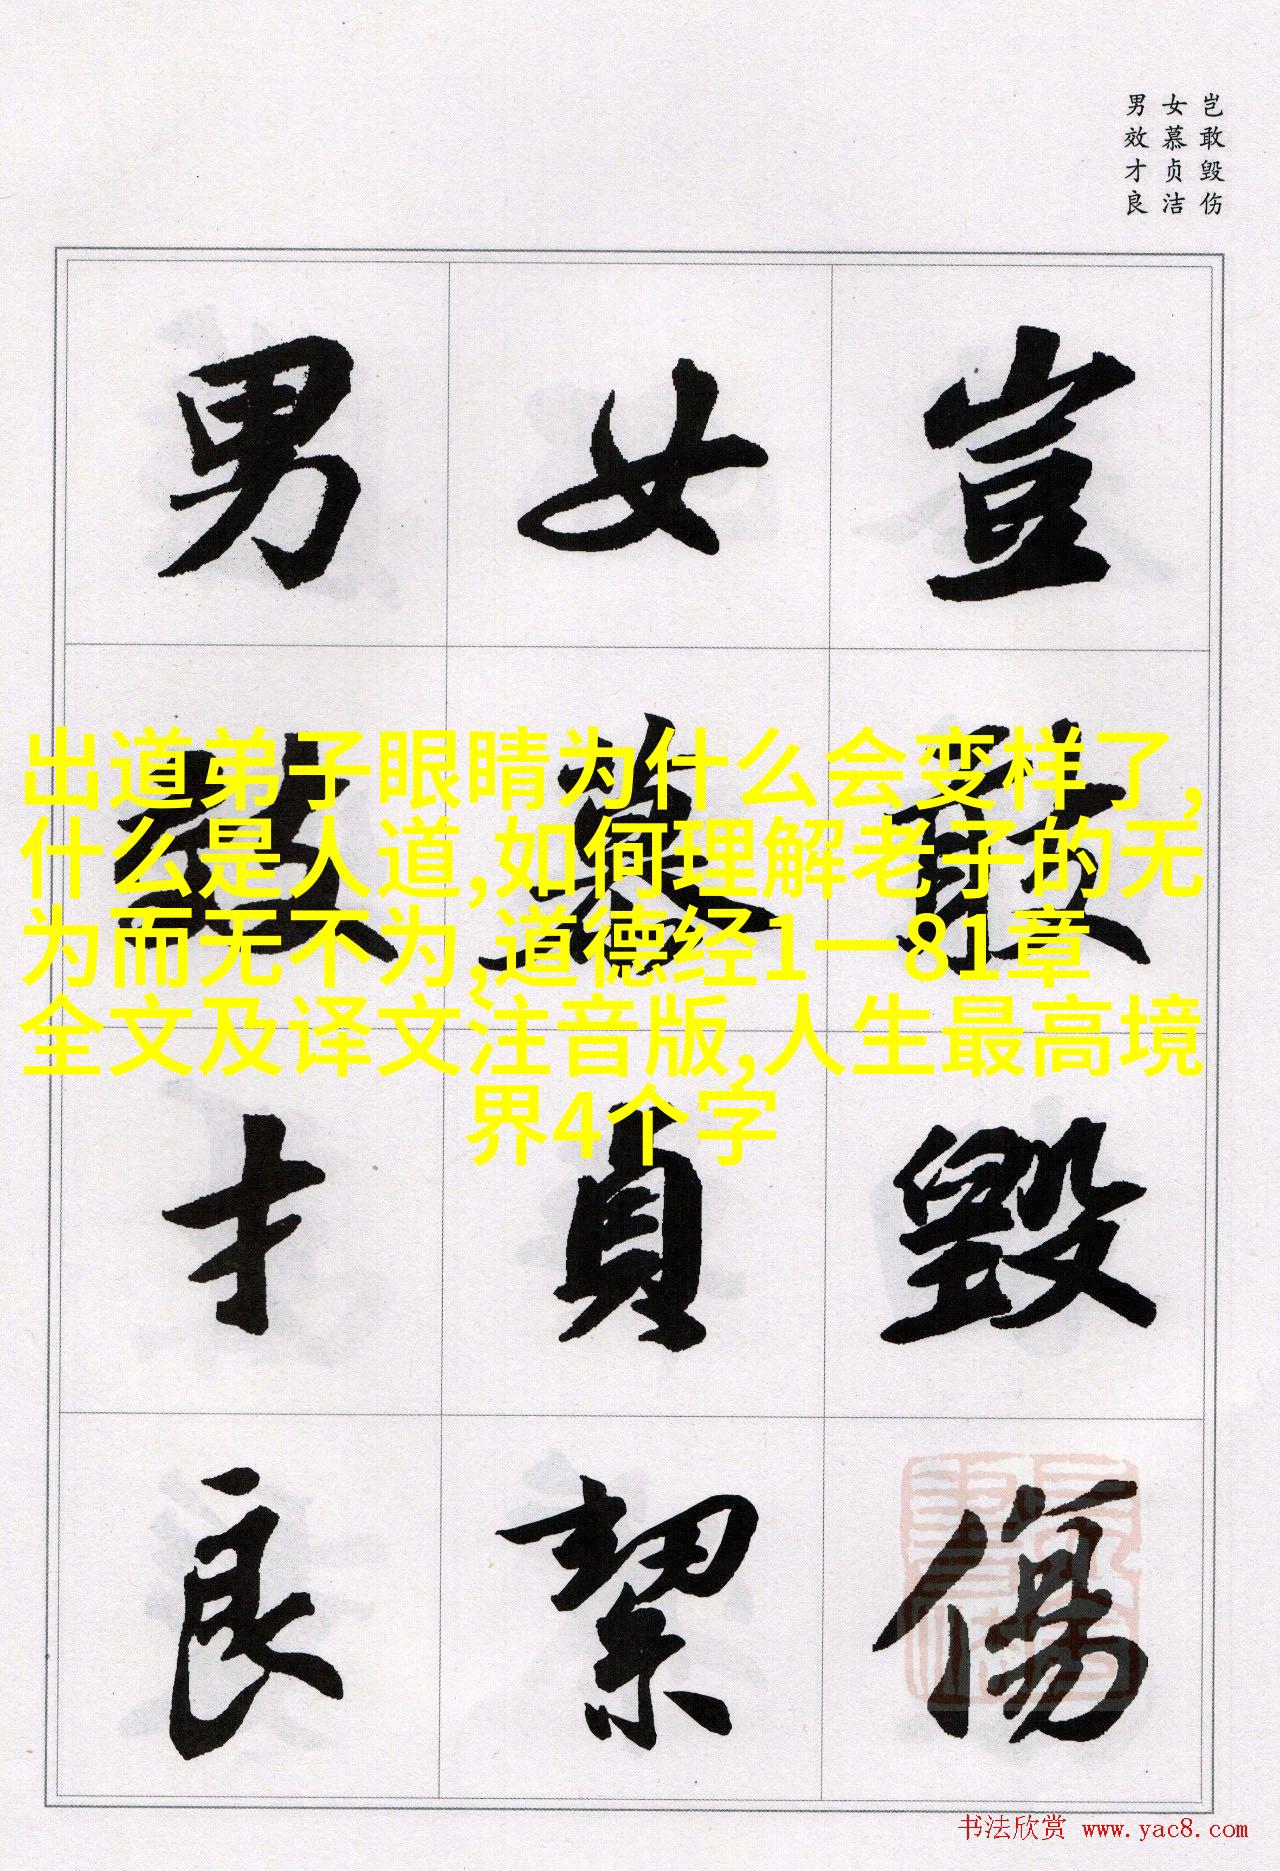 岂敢毁伤
女慕贞洁
男效才良
豈敢毀傷
女慕貞絜
男效才良
出道弟子眼睛为什么会变样了,
什么是人道,如何理解老子的无
为而无不为,道德经1一81章
全文及译文注音版,人生最高境
界4个字
书法欣赏 www.yac8.com